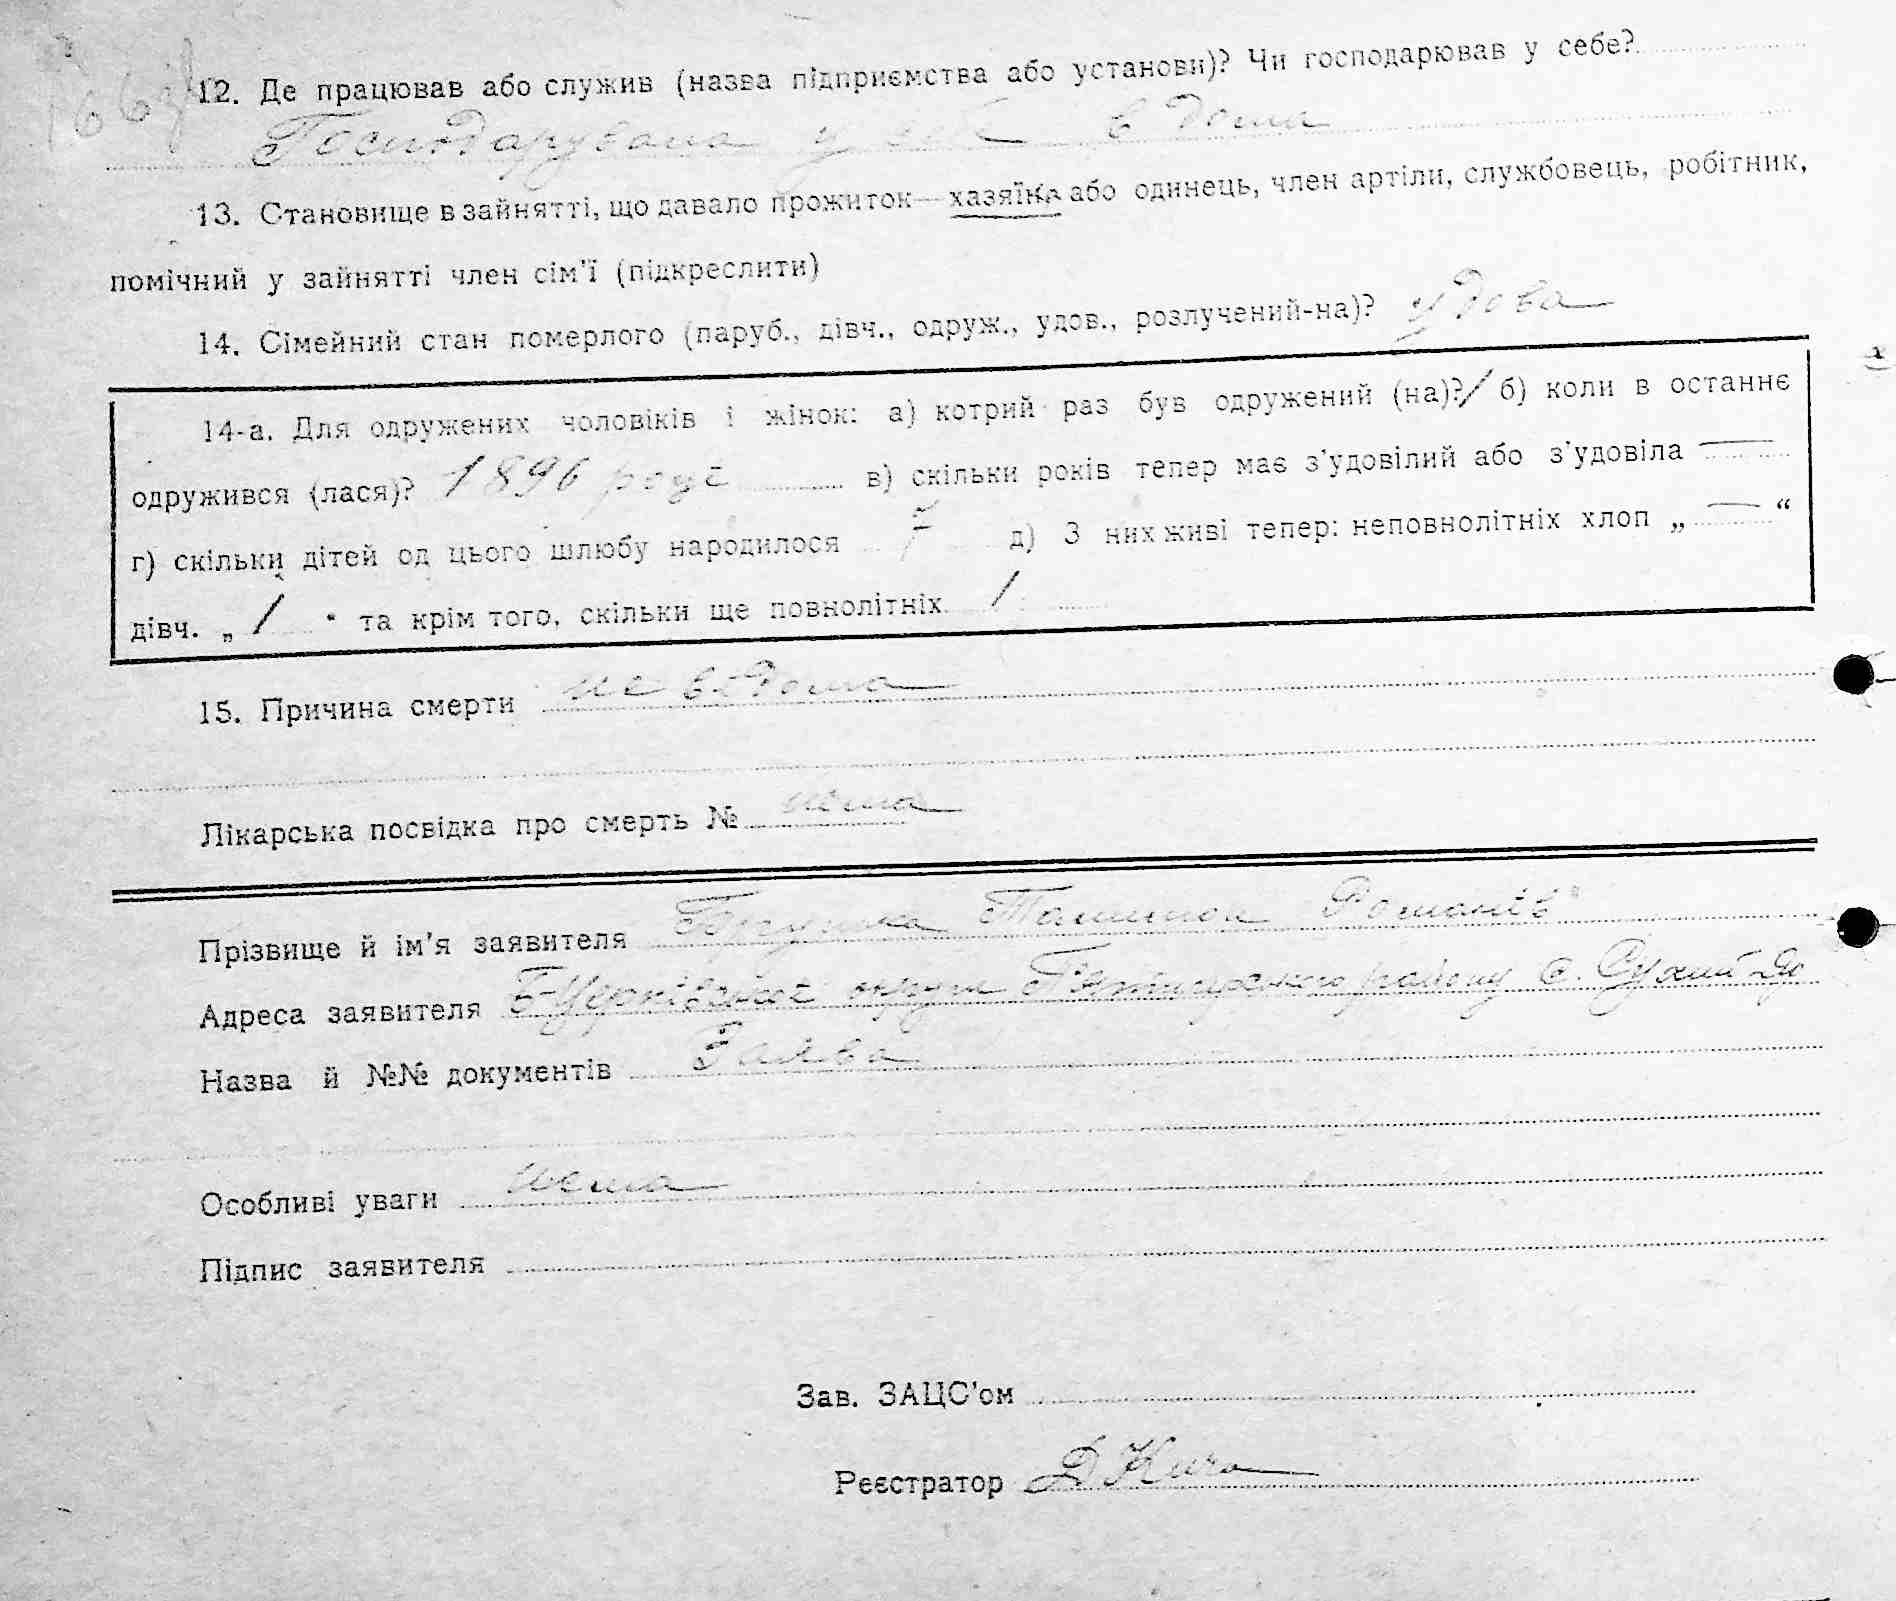 12. Де працював або служив (назва підприємства або установи)? Чи господарював у себе?
Господарувала у себе в дома
13. Становище в зайнятті, що давало прожиток—хазяїка або одинець, член артіли, службовець, робітник,
помічний у зайнятті член сім'ї (підкреслити)
14. Сімейний стан померлого (паруб., дівч., одруж., удов., розлучений-на)? удова
14-а. Для одружених чоловіків і жінок: а) котрий раз був одружений (на)? / б) коли в останнє
одружився (лася)? 1896 році в) скільки років тепер має з'удовілий або з'удовіла —
г) скільки дітей од цього шлюбу народилося д) З них живі тепер: неповнолітніх хлоп „ — “
дівч. „ 1 “ та крім того, скільки ще повнолітніх 1
15. Причина смерти не відома
Лікарська посвідка про смерть № нема
Прізвище й ім'я заявителя Романів
Адреса заявителя Б-Церківської округи району с. Сухий Яр
Назва й №№ документів Заява
Особливі уваги нема
Підпис заявителя
Зав. ЗАЦС'ом
Реєстратор Д